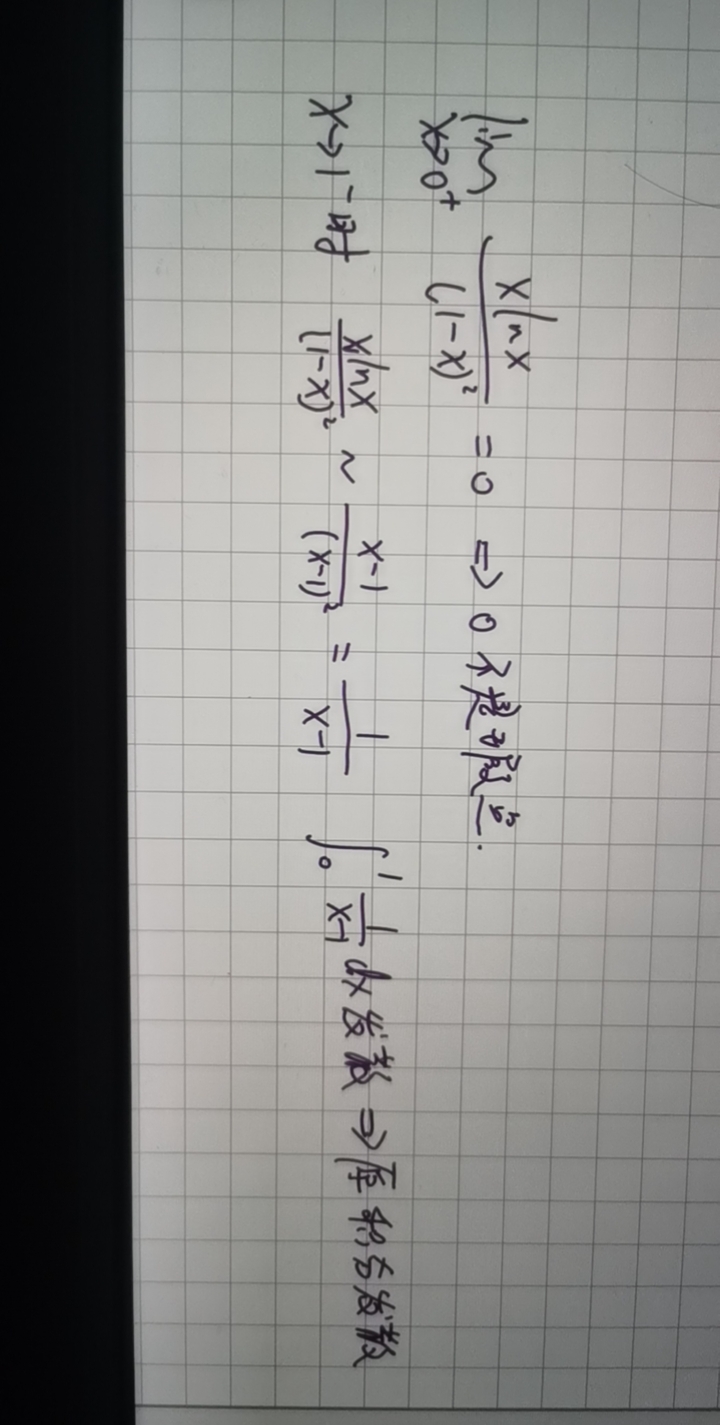 lim x→0⁺ xlnx/(1-x)² = 0 ⇒ 0不是瑕点.
x→1⁻时 xlnx/(1-x)² ~ x-1/(x-1)² = 1/x-1 ∫₀¹ 1/x-1 dx 发散 ⇒ 原积分发散